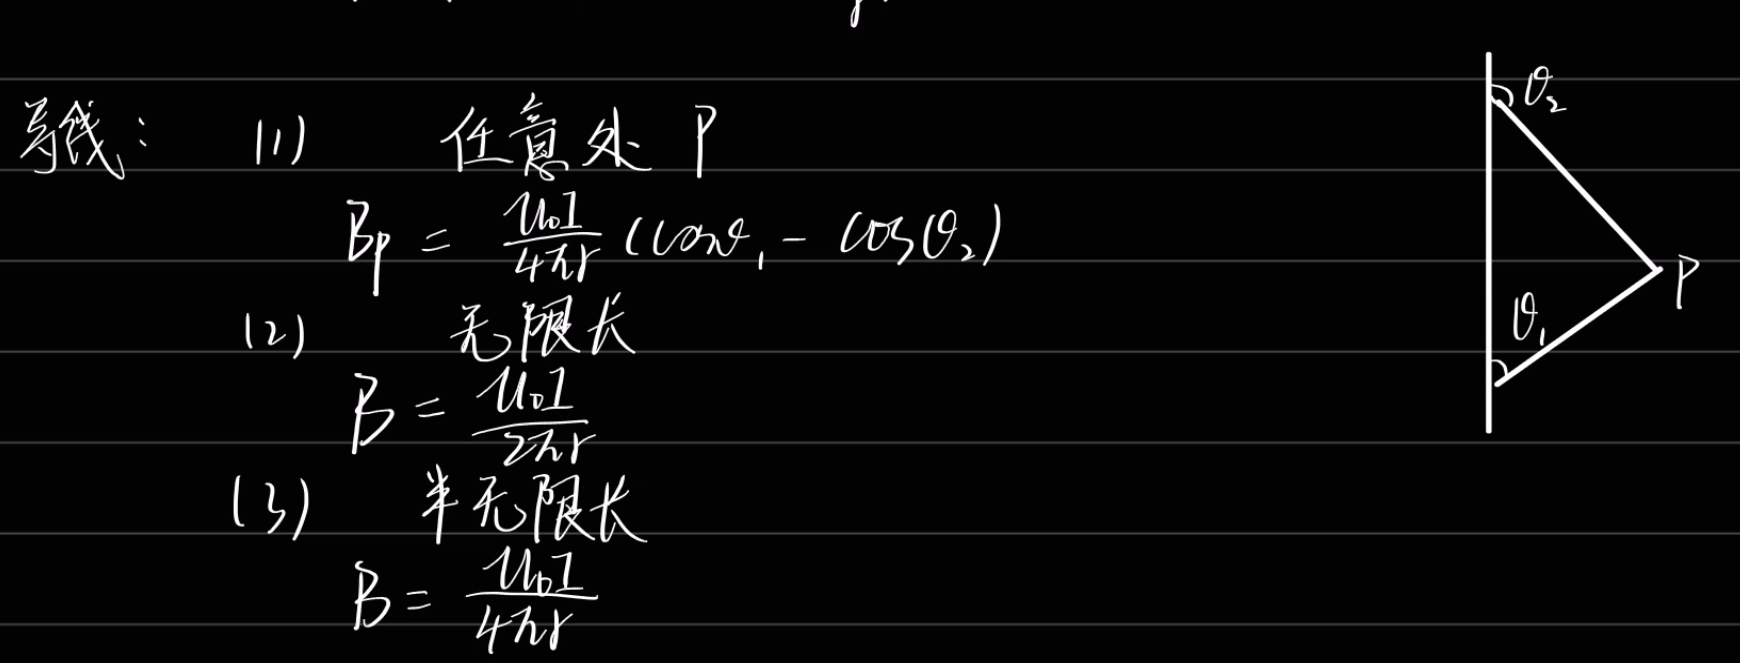 导线： (1) 任意处 P
Bp = μ₀I/4πr (cosθ₁ - cosθ₂)
(2) 无限长
B = μ₀I/2πr
(3) 半无限长
B = μ₀I/4πr
θ₂
P
θ₁